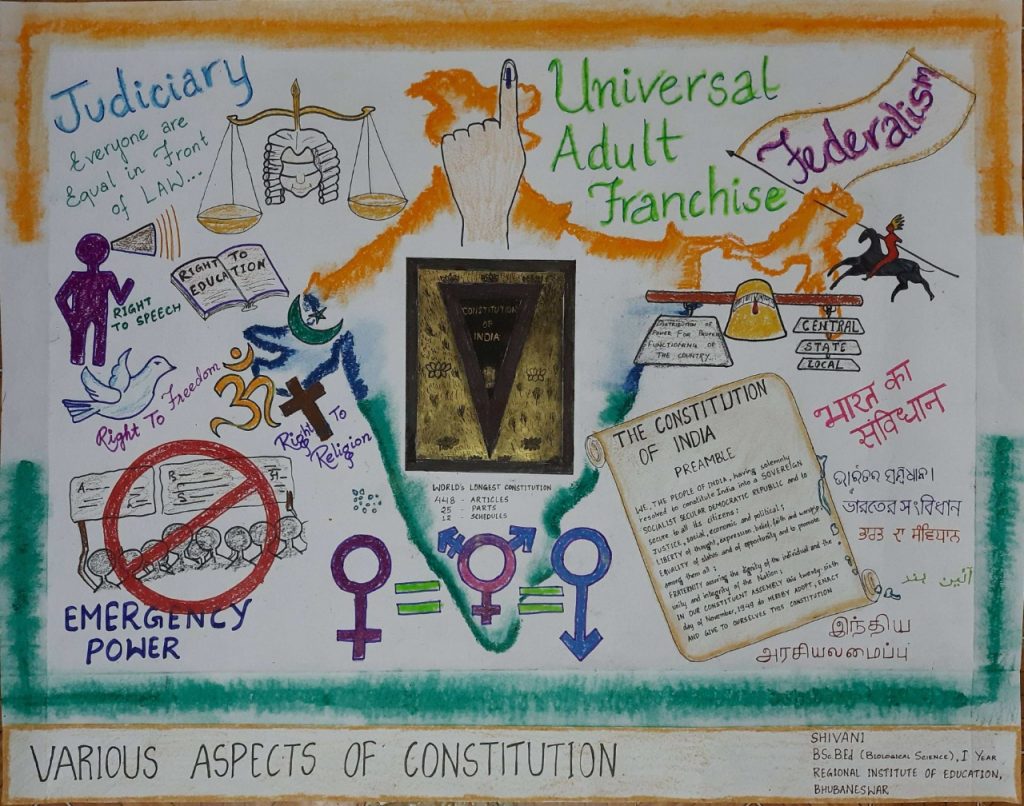 Judiciary
Everyone are
Equal in Front
of LAW...
Universal
Adult
Franchise
Federalism
RIGHT TO
EDUCATION
RIGHT
TO SPEECH
CONSTITUTION
OF
INDIA
DISTRIBUTION OF
POWER FOR PROPER
FUNCTIONING OF
THE COUNTRY...
CENTRAL
STATE
LOCAL
Right To Freedom
ॐ
Right To
Religion
A
B
स
EMERGENCY
POWER
WORLD'S LONGEST CONSTITUTION
448 - ARTICLES
25 - PARTS
12 - SCHEDULES
THE CONSTITUTION
OF INDIA
PREAMBLE
WE, THE PEOPLE OF INDIA, having solemnly
resolved to constitute India into a SOVEREIGN
SOCIALIST SECULAR DEMOCRATIC REPUBLIC and to
secure to all its citizens:
JUSTICE, social, economic and political;
LIBERTY of thought, expression, belief, faith and worship;
EQUALITY of status and of opportunity and to promote
among them all;
FRATERNITY assuring the dignity of the individual and the
unity and integrity of the Nation;
IN OUR CONSTITUENT ASSEMBLY this twenty-sixth
day of November, 1949 do HEREBY ADOPT, ENACT
AND GIVE TO OURSELVES THIS CONSTITUTION
भारत का
संविधान
ଭାରତର ସମ୍ବିଧାନ
ভারতের সংবিধান
ਭਾਰਤ ਦਾ ਸੰਵਿਧਾਨ
آئین ہند
இந்திய
அரசியலமைப்பு
VARIOUS ASPECTS OF CONSTITUTION
SHIVANI
BSc BEd (BIOLOGICAL SCIENCE), I YEAR
REGIONAL INSTITUTE OF EDUCATION,
BHUBANESWAR